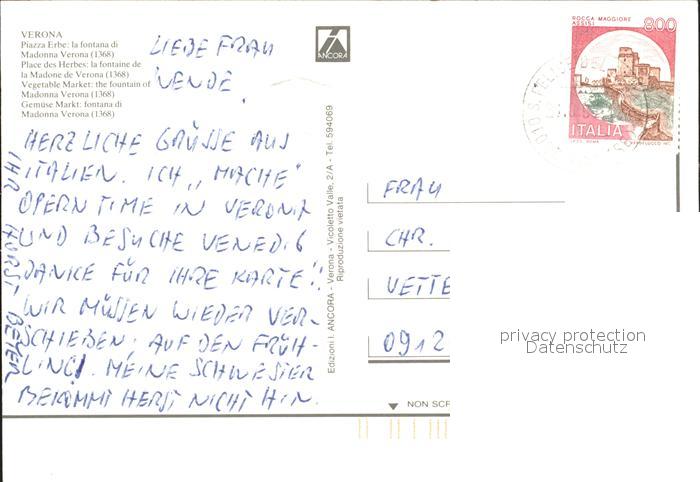 VERONA
Piazza Erbe: la fontana di
Madonna Verona (1368)
Place des Herbes: la fontaine de
la Madone de Verona (1368)
Vegetable Market: the fountain of
Madonna Verona (1368)
Gemüse Markt: fontana di
Madonna Verona (1368)
LIEBE FRAU
VENDE,
HERZLICHE GRÜSSE AUS
ITALIEN. ICH „MACHE"
OPERN TIME IN VERONA
UND BESUCHE VENEDIG
DANKE FÜR IHRE KARTE!!
WIR MÜSSEN WIEDER VER-
SCHIEBEN; AUF DEN FRÜH-
LING!. MEINE SCHWESTER
BEKOMMT HERBST NICHT HIN.
IHR
HORST BEYER
ANCORA
Edizioni I. ANCORA - Verona - Vicoletto Valle, 2/A - Tel. 594069
Riproduzione vietata
ROCCA MAGGIORE
ASSISI
800
ITALIA
FRAU
CHR.
VETTE
0912
NON SCR
privacy protection
Datenschutz